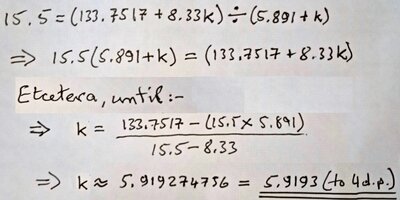 15.5 = (133.7517 + 8.33k) ÷ (5.891 + k)
⇒ 15.5(5.891+k) = (133.7517 + 8.33k)
Etcetera, until:-
⇒ k = 133.7517 - (15.5 × 5.891)
15.5 - 8.33
⇒ k ≈ 5.919274756 = 5.9193 (to 4 d.p.)